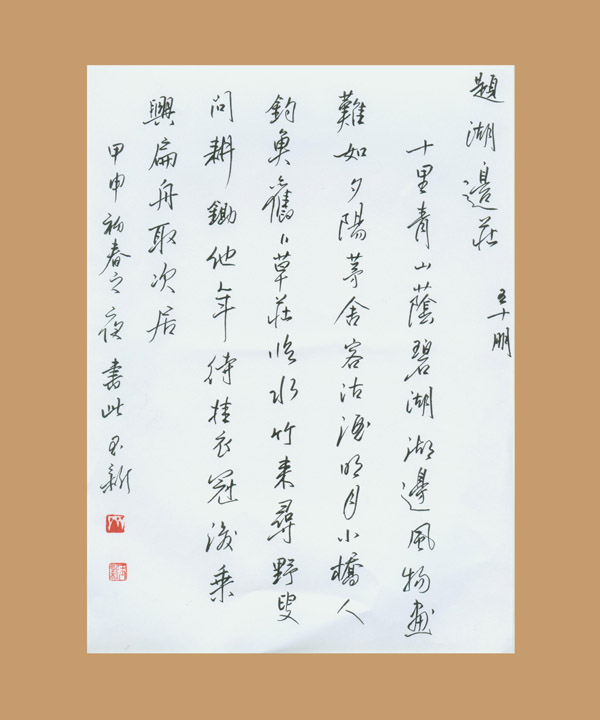 題湖邊莊
王十朋
十里青山蔭碧湖湖邊風物畫
難如夕陽茅舍客沽酒明月小橋人
釣魚舊卜草莊臨水竹来尋野叟
問耕鋤他年待挂衣冠後乗
興扁舟取次居
甲申初春之夜書此